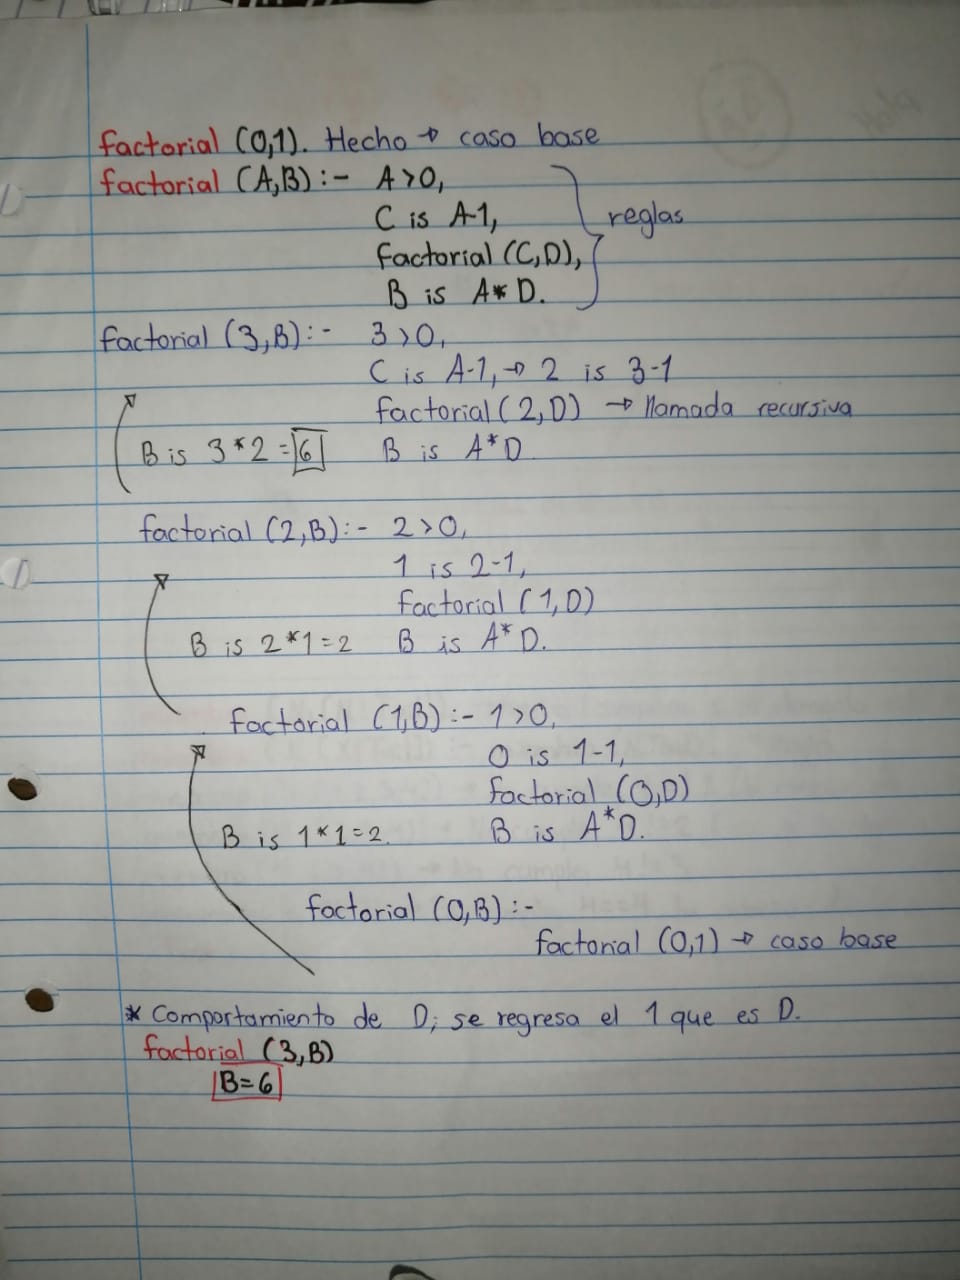 factorial (0,1). Hecho → caso base
factorial (A,B) :- A>0,
C is A-1,
factorial (C,D),
B is A*D.
reglas
factorial (3,B) :- 3>0,
C is A-1, → 2 is 3-1
factorial (2,D) → llamada recursiva
B is 3*2 = 6 B is A*D
factorial (2,B) :- 2>0,
1 is 2-1,
factorial (1,D)
B is 2*1=2 B is A*D.
factorial (1,B) :- 1>0,
0 is 1-1,
factorial (0,D)
B is 1*1=2. B is A*D.
factorial (0,B) :-
factorial (0,1) → caso base
* Comportamiento de D; se regresa el 1 que es D.
factorial (3,B)
B=6